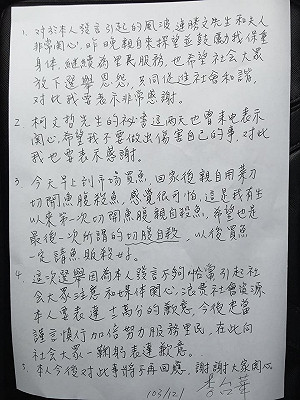 1. 對於本人發言引起的風波連勝文先生和夫人
非常關心,昨晚親自來探望並鼓勵我保重
身体,繼續為里民服務,也希望社会大眾
放下選舉恩怨,共同促進社會和諧,
對此我要表示非常感謝。
2. 柯文哲先生的祕書這兩天也曾來电表示
關心,希望我不要做出傷害自己的事,對此
我也要表示感謝。
3. 今天早上到市場買魚,回家後親自用菜刀
切開魚腹殺魚,感覺很可怕,這是我有生
以來第一次切開魚腹親自殺魚,希望也是
最後一次所謂的切腹自殺,以後買魚
一定請魚販殺好。
4. 這次選舉因為本人發言不夠恰當引起社
会大眾注意和媒体關心,浪费社會資源
本人要表達十二萬分的歉意,今後应當
謹言慎行加倍努力服務里民,在此向
社会大眾一鞠躬表達歉意。
5. 本人今後對此事將不再回應,謝謝大家關心
103/12/1 李台華